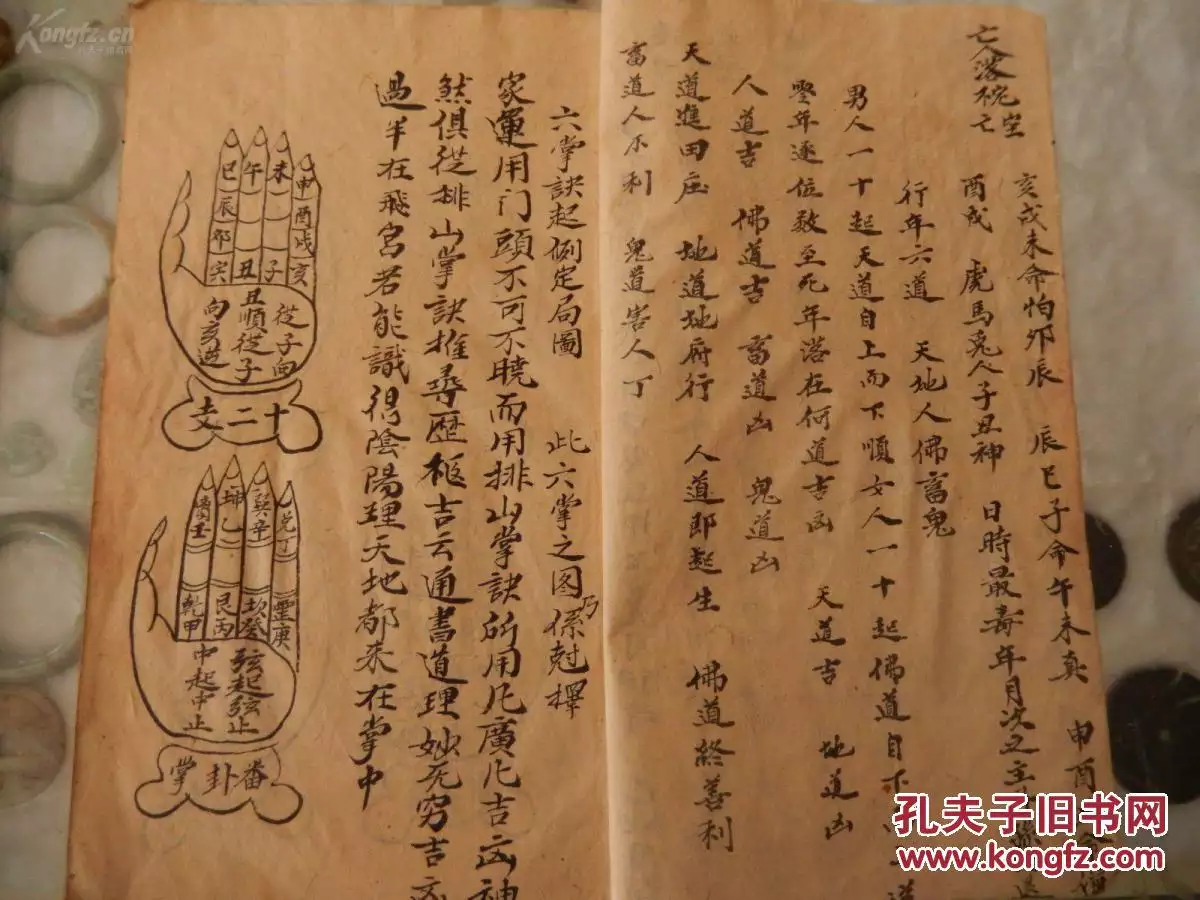 亡人落枕空亡
亥戌未命怕夘辰 辰巳子命午未真 申酉
酉戌 虎馬兎人子丑神 日時最毒年月次之主
行年六道 天地人佛畜鬼
男人一十起天道自上而下順女人一十起佛道自下
零年逐位数至死年落在何道吉凶 天道吉 地道凶
人道吉 佛道吉 畜道凶 鬼道凶
天道進田庄 地道地府行 人道即起生 佛道終善利
畜道人不利 鬼道害人丁
六掌訣起例定局圖 此六掌之图乃係尅擇
家運用门頭不可不曉而用排山掌訣所用凡廣凢吉凶神
然俱從排山掌訣推尋歷 吉云通書道理妙无穷吉凶
過半在飛宮若能識得陰陽理天地都来在掌中
申酉戌亥
未 子
午 丑
巳辰卯寅
從子向
丑順從子
向亥逆
十二支
兑丁 震庚
巽辛 坎癸
坤乙 艮丙
壬 乾甲
弦起弦止
中起中止
番卦掌
Kongfz.cn
孔夫子旧书网
孔夫子旧书网
www.kongfz.com